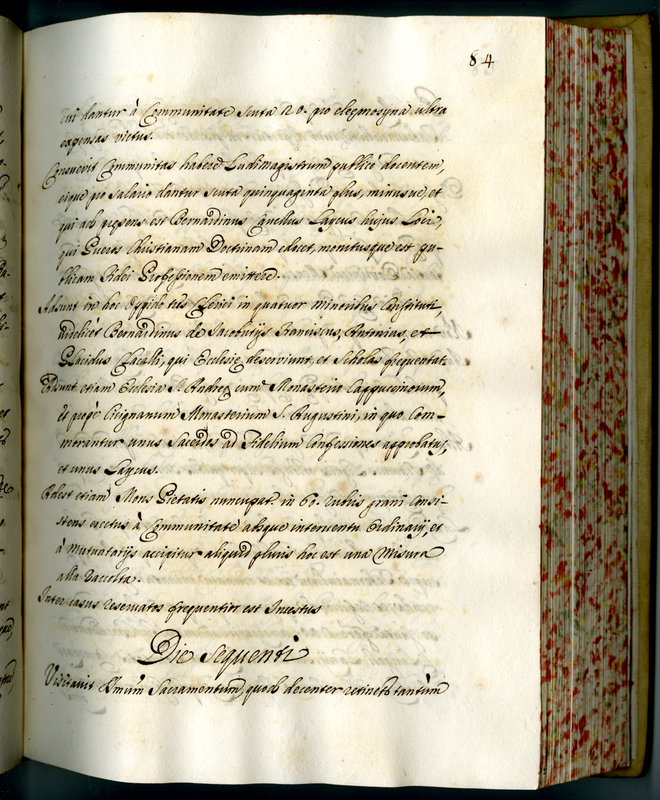 84
cui dantur à Communitate Scuta 20. pro eleemosyna ultra
expensas victus.
Consuevit Communitas habere Ludimagistrum publicè docentem,
eique pro salario dantur scuta quinquaginta plus, minusve, et
qui ad præsens est Bernardinus Laycus hujus Loci,
qui Pueros Christianam Doctrinam edocet, monitusque est pu-
blicam Fidei Professionem emittere.
Adsunt in hoc Oppido tres Clerici in quatuor minoribus constituti,
videlicet Bernardinus de Jacobutijs Franciscus, Antonius, et
Placidus Ciccalli, qui Ecclesiæ deserviunt, et Scholas frequentat.
Adsunt etiam Ecclesia S. Andreæ cum Monasterio Cappuccinorum,
et propè Monasterium S. Augustini, in quo Com-
morantur unus Sacerdos ad Fidelium Confessiones approbatus,
et unus Laycus.
Adest etiam Mons Pietatis nuncupat. in 60. rubis grani consi-
stens erectus à Communitate absque interventu Ordinarij, et
à Mutuatarijs accipitur aliquid pluris hoc est una Misura
alla raccolta.
Inter casus reservatos frequentior est Incestus
Die sequenti
Visitavit Smum Sacramentum, quod decenter retinet tantùm